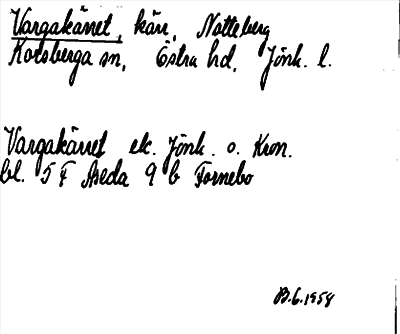 Vargakärret, kärr, Notteberg
Korsberga sn, Östra hd, Jönk. l.
Vargakärret ek. Jönk. o. Kron.
bl. 5 F Åseda 9 b Fornebo
B.G.1958